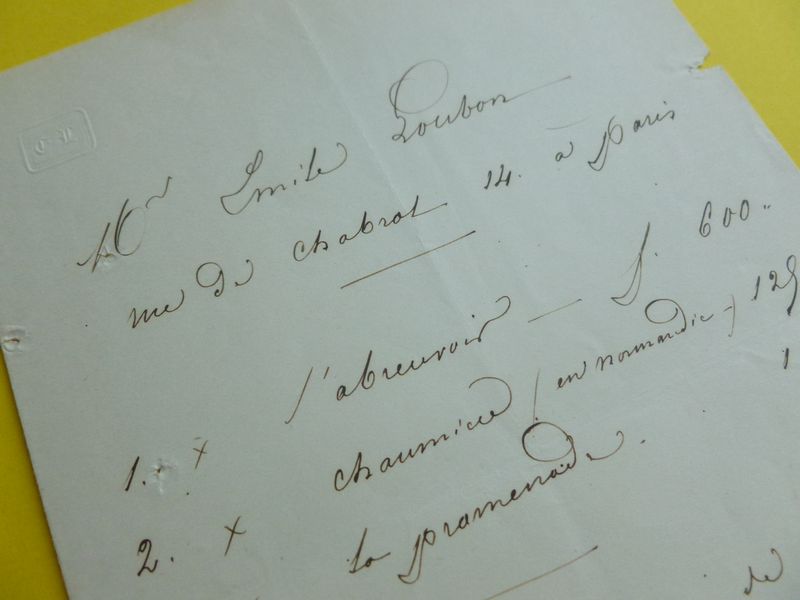 Mr Emile Loubon
rue de chabrol 14. à Paris
1. x l'abreuvoir — f. 600
2. x chaumière (en normandie) 125
la promenade.
de